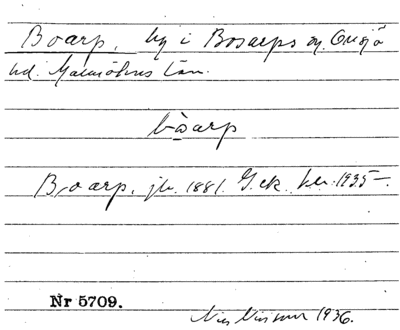 Boarp, by i Bosarps sn. Onsjö
hd. Malmöhus län.
bòarp
Boarp, jb. 1881. G.ek. kr. 1935–.
Nr 5709.
Nils Nilsson 1936.